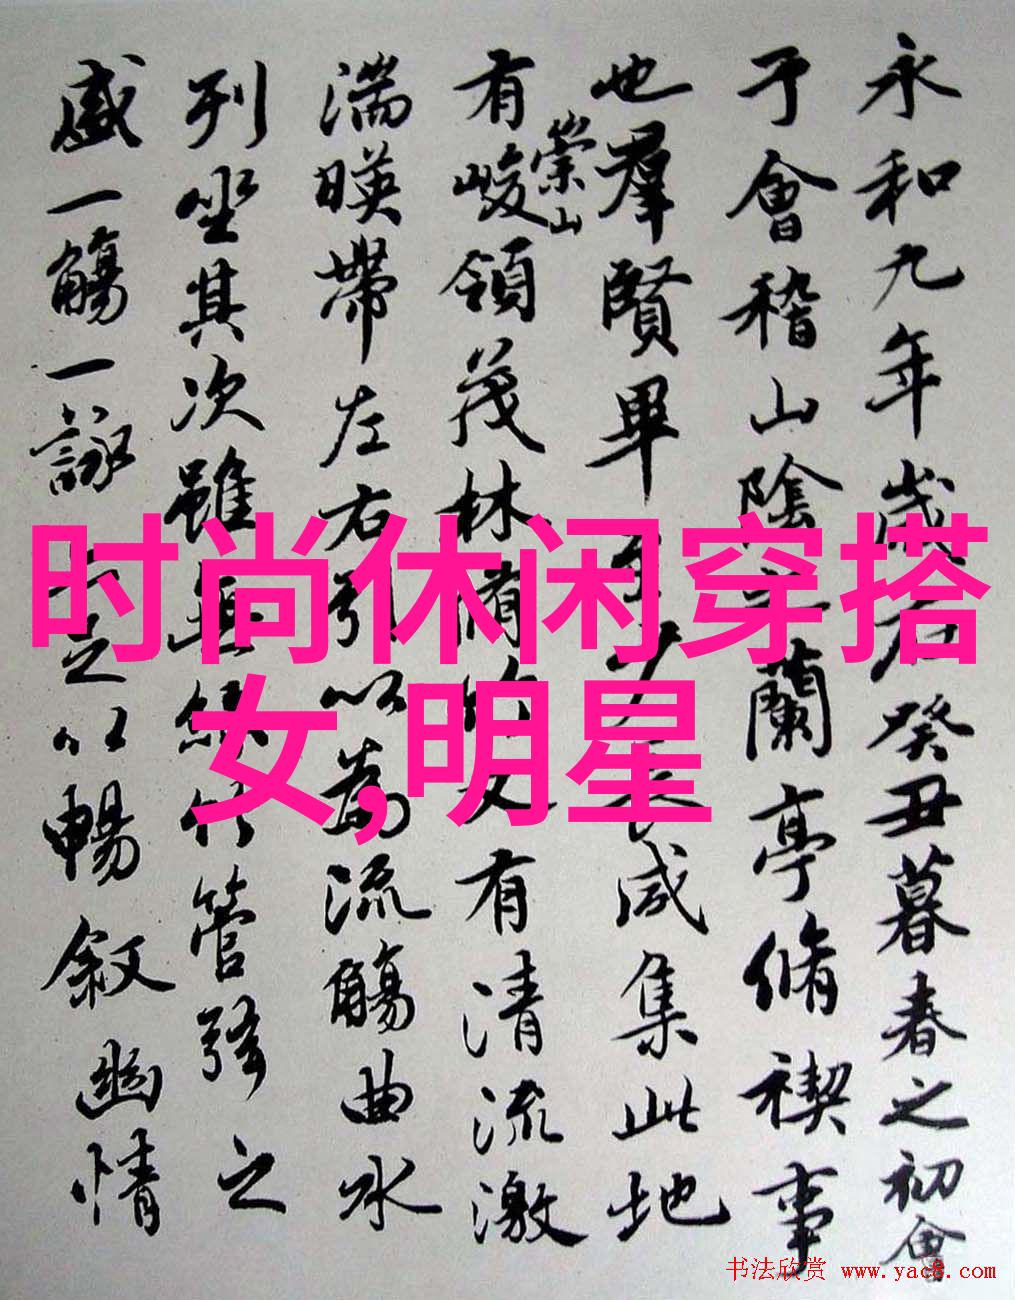 永和九年歲在癸丑暮春之初會
于會稽山陰之蘭亭脩禊事
也羣賢畢至少長咸集此地
有崇山峻領茂林脩竹又有清流激
湍暎帶左右引以為流觴曲水
列坐其次雖無絲竹管弦之
盛一觴一詠亦足以暢敘幽情
时尚休闲穿搭
女,明星
书法欣赏 www.yac8.com